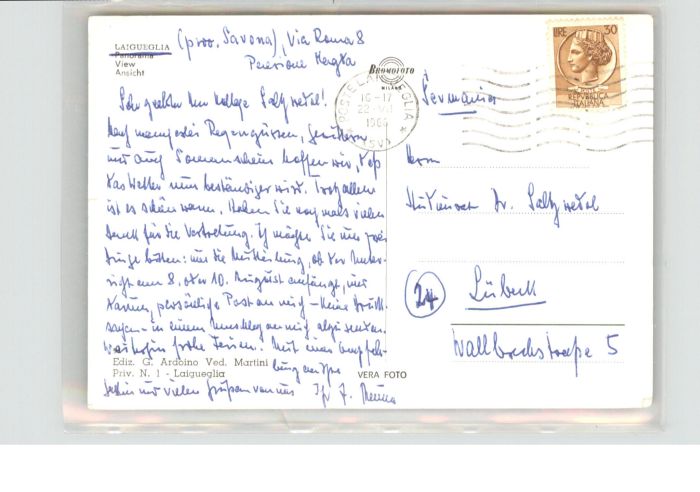 LAIGUEGLIA (prov. Savona), Via Roma 8
Panorama
View
Ansicht
Pensione
BROMOFOTO
MILANO
POSTE LAIGUEGLIA
16-17
(SV)
LIRE 30
REPUBBLICA
ITALIANA
Sehr geehrter Herr Kollege Saltzwedel!
Nach mancherlei Regengüssen, Gewittern
und auch Sonnenschein hoffen wir, daß
das Wetter nun beständiger wird. Trotz allem
ist es schön warm. Haben Sie nochmals vielen
Dank für die Vertretung. Ich möchte Sie um zwei
Dinge bitten: um die Mitteilung, ob der Unter-
richt am 8. oder 10. August anfängt, und
darum, persönliche Post an mich - keine Druck-
sachen - in einem Umschlag an mich abzusenden.
Weiterhin frohe Ferien. Mit einer Empfeh-
lung an Ihre
und vielen Grüßen von uns Ihr
Ediz. G. Ardoino Ved. Martini
Priv. N. 1 - Laigueglia
VERA FOTO
Germania
Herrn
Dr. Saltzwedel
24 Lübeck
Wallbrechtstraße 5